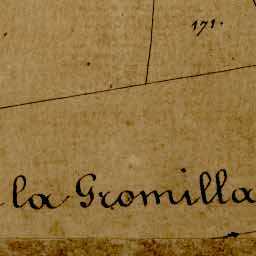 171.
la Gromilla